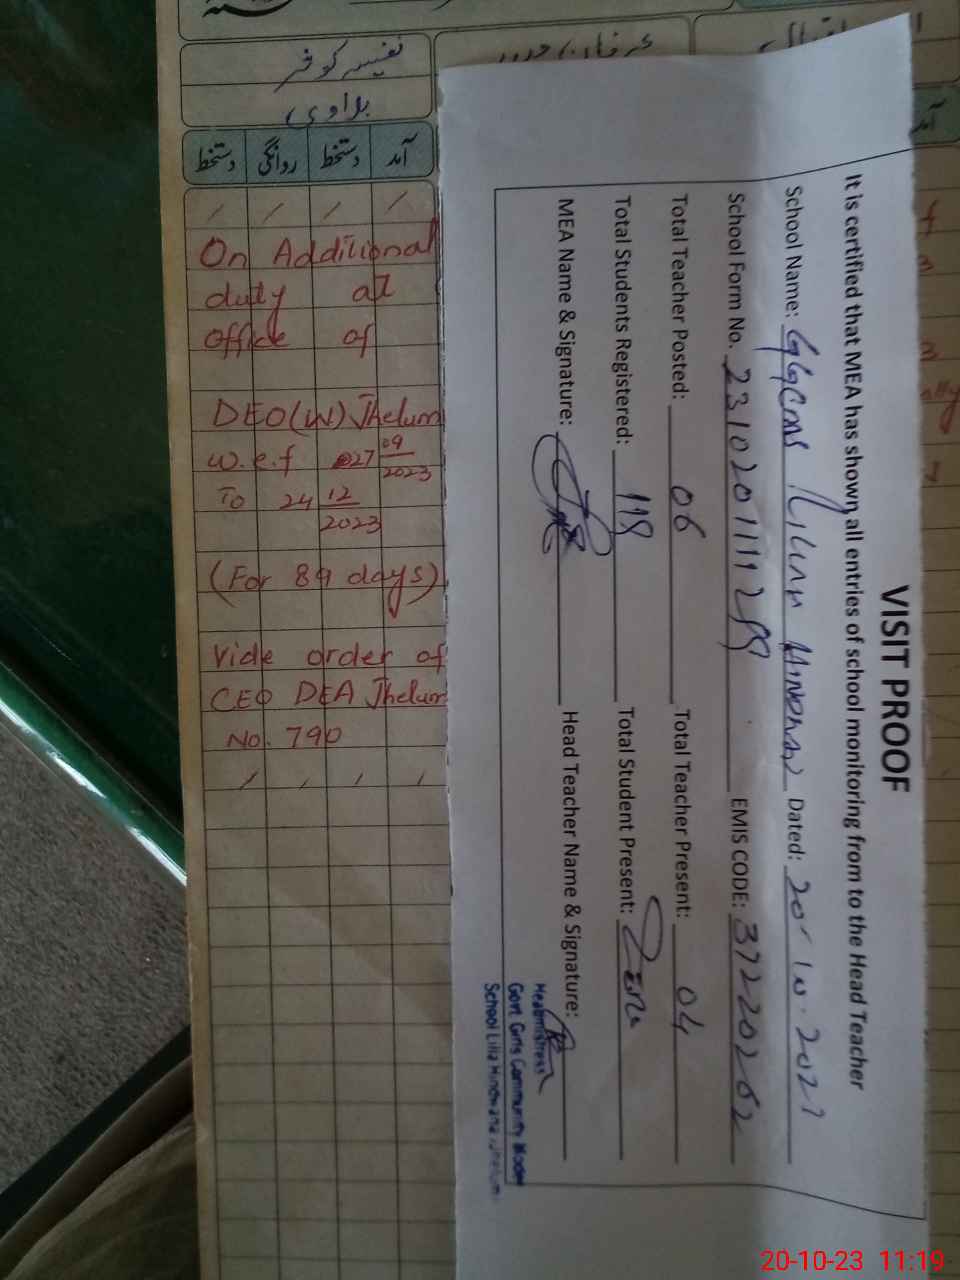 نفیسہ کوثر
آمد دستخط روانگی دستخط
On Additional
duty at
office of
DEO(W) Jhelum
w.e.f 27 09 2023
To 24 12 2023
(For 89 days)
Vide order of
CEO DEA Jhelum
No. 790
VISIT PROOF
It is certified that MEA has shown all entries of school monitoring from to the Head Teacher
School Name: GGCMS Hindwal Dated: 20-10-2023
School Form No. EMIS CODE: 37220262
Total Teacher Posted: 06 Total Teacher Present: 04
Total Students Registered: 118 Total Student Present: Zero
MEA Name & Signature: Head Teacher Name & Signature:
Headmistress
Govt. Girls Community Model
School Lilla Hindwana Jhelum
20-10-23 11:19